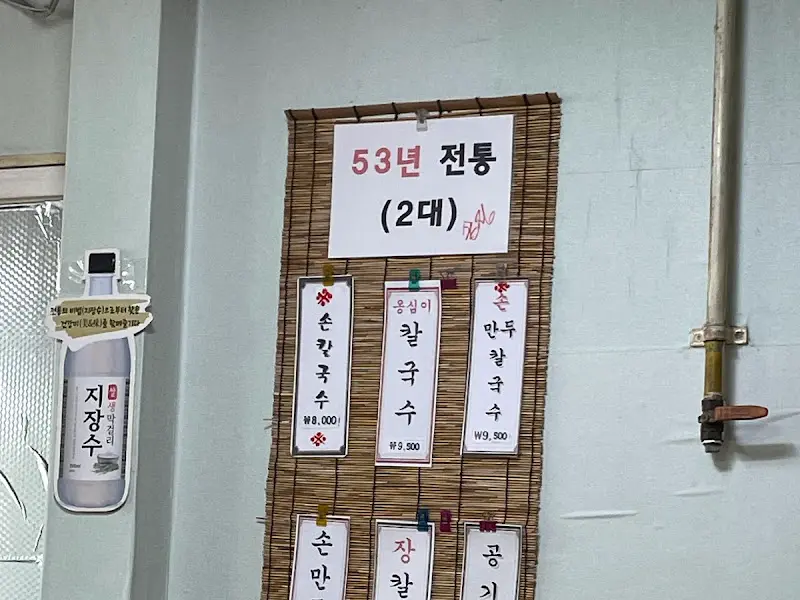 53년 전통
(2대)
손칼국수
₩8,000
옹심이
칼국수
₩9,500
손
만두
칼국수
₩9,500
손만
장
칼
공기
쌀
생막걸리
지장수